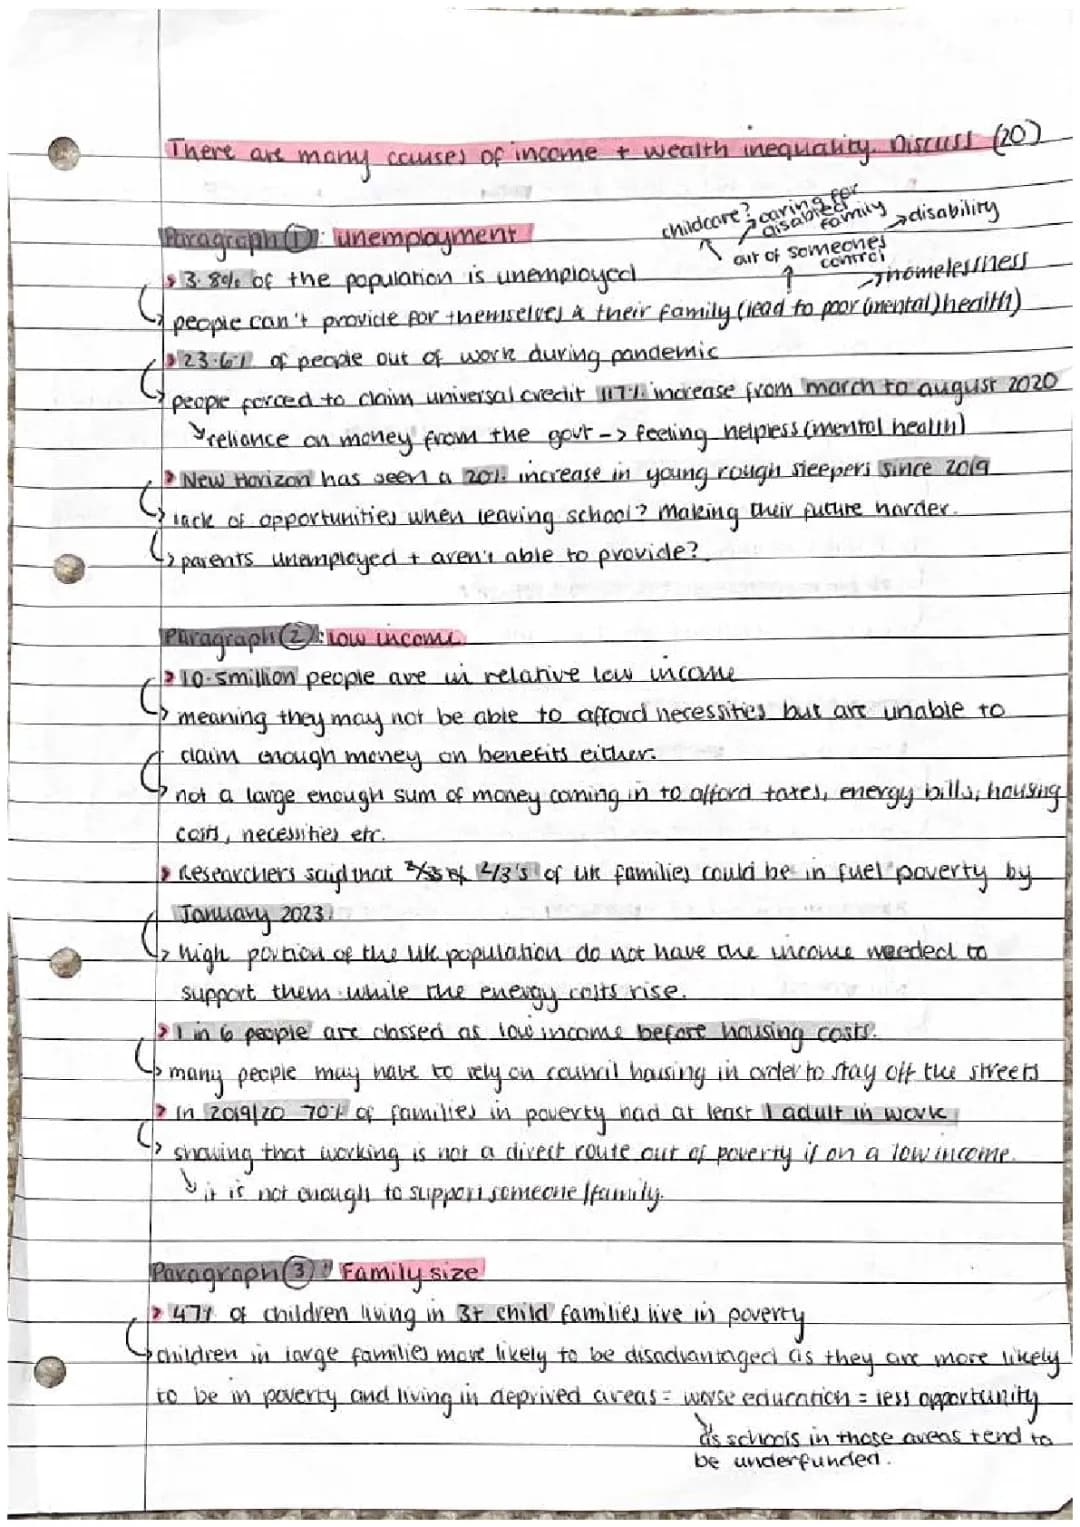 There are many causes of income + wealth inequality. Discuss (20)
childcare? caring for disabled family
disability
out of someones control
homelessness
Paragraph 1: unemployment
3.8% of the population is unemployed
people can't provide for themselves & their family (lead to poor (mental) health)
23.6% of people out of work during pandemic
people forced to claim universal credit 117% increase from march to august 2020
reliance on money from the govt -> feeling helpless (mental health)
New Horizon has seen a 20% increase in young rough sleepers since 2019
lack of opportunities when leaving school? making their future harder.
parents unemployed + aren't able to provide?
Paragraph 2: low income
10.5million people are in relative low income
meaning they may not be able to afford necessities but are unable to
claim enough money on benefits either.
not a large enough sum of money coming in to afford taxes, energy bills, housing
costs, necessities etc.
Researchers said that 2/3's of UK families could be in fuel poverty by
January 2023
high portion of the UK population do not have the income needed to
support them while the energy costs rise.
1 in 6 people are classed as low income before housing costs.
many people may have to rely on council housing in order to stay off the streets
in 2019/20 70% of families in poverty had at least 1 adult in work
showing that working is not a direct route out of poverty if on a low income.
it is not enough to support someone/family.
Paragraph 3: Family size
47% of children living in 3+ child families live in poverty
children in large families more likely to be disadvantaged as they are more likely
to be in poverty and living in deprived areas = worse education = less opportunity
as schools in those areas tend to
be underfunded.